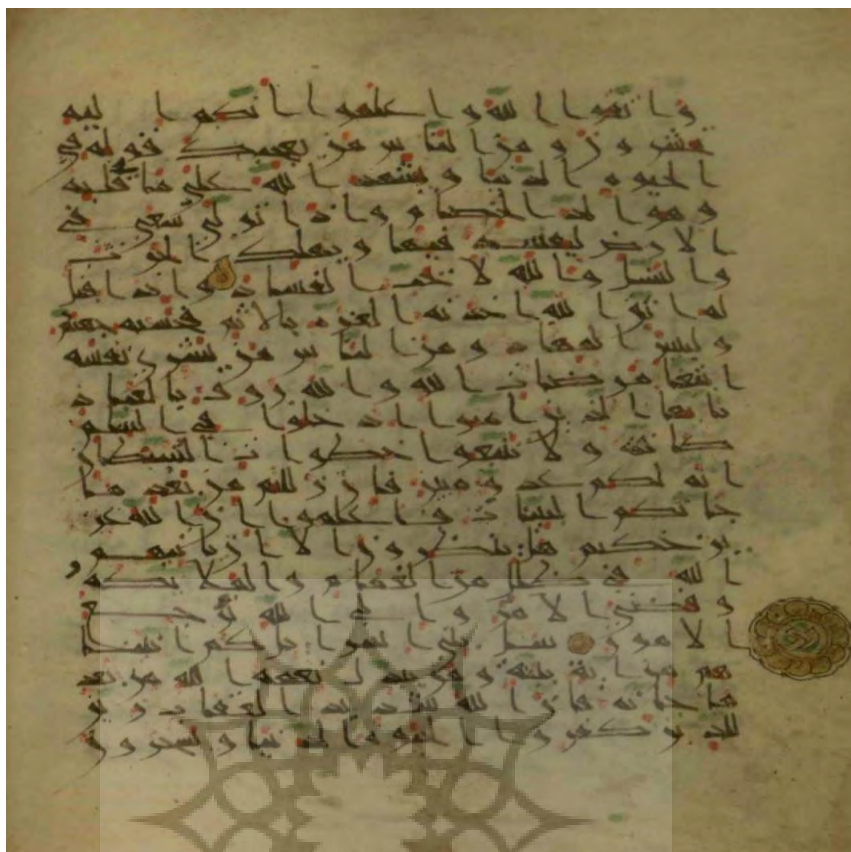 واتقوا الله واعلموا انكم اليه
تحشرون ومن الناس من يعجبك قوله في
الحيوة الدنيا ويشهد الله على ما في قلبه
وهو الد الخصام واذا تولى سعى في
الارض ليفسد فيها ويهلك الحرث
والنسل والله لا يحب الفساد واذا قيل
له اتق الله اخذته العزة بالاثم فحسبه جهنم
ولبئس المهاد ومن الناس من يشري نفسه
ابتغا مرضات الله والله روف بالعباد
يايها الذين امنوا ادخلوا في السلم
كافة ولا تتبعوا خطوات الشيطان
انه لكم عدو مبين فان زللتم من بعد ما
جاتكم البينات فاعلموا ان الله عز
يز حكيم هل ينظرون الا ان ياتيهم
الله في ظلل من الغمام والملائكة
وقضي الامر والى الله ترجع
الامور سل بني اسرائيل كم اتينا
هم من اية بينة ومن يبدل نعمة الله من بعد
ما جاته فان الله شديد العقاب زين
للذين كفروا الحيوة الدنيا ويسخرون